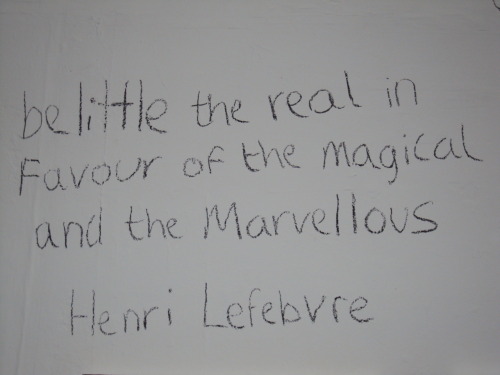 belittle the real in
Favour of the magical
and the Marvellous
Henri Lefebvre